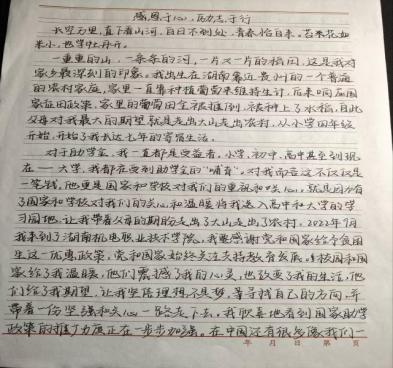 感恩于心，励志于行
长空万里，直下看山河，白日不到处，青春恰自来。苔花如
米小，也学牡丹开。
一重重的山，一条条的河，一片又一片的稻田，这是我对
家乡最深刻的印象。我出生在湖南靠近贵州的一个普通
的农村家庭，家里一直靠种植葡萄来维持生计，后来响应国
家征田政策，家里的葡萄田全被推倒，被种上了水稻，因此
父母对我最大的期望就是走出大山走出农村，从小学四年级
开始，开始了我长达七年的寄宿生活。
对于助学金，我一直都是受益者。小学，初中，高中甚至到现
在——大学，我都在受到助学金的“哺育”。对我而言这不仅仅是
一笔钱，他更是国家和学校对我们的重视和关心，就是因为有
了国家和学校对我们的关心和温暖将我送入高中和大学的学
习园地，让我带着父母的期盼走出了大山走出了农村。2022年9月
我来到了湖南机电职业技术学院，我要感谢党和国家给予贫困
生这一优惠政策，党和国家始终关注支持教育发展。校园和国
家给了我温暖，他们震撼了我的心灵，也改变了我的生活，他
们给了我期望，让我坚信理想不是梦，等寻找自己的方向，并
带着一份坚强和关心一路走下去。我欣喜地看到国家助学
政策的推广力度正在一步步加强。在中国还有很多像我们一
年 月 日 第 页